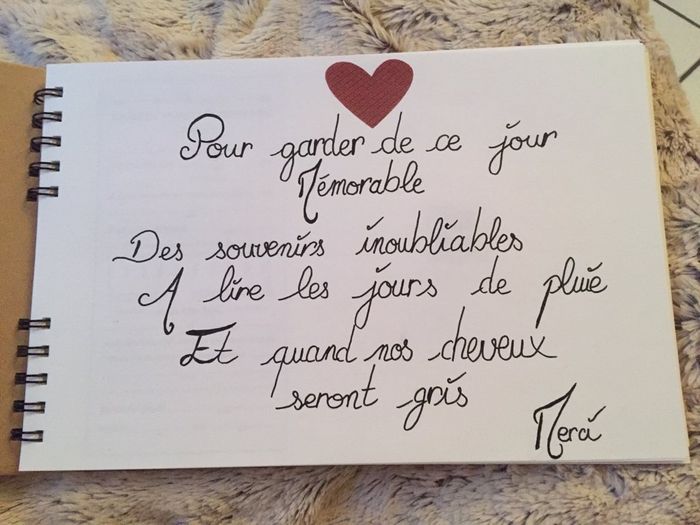 Pour garder de ce jour
Mémorable
Des souvenirs inoubliables
A lire les jours de pluie
Et quand nos cheveux
seront gris
Merci